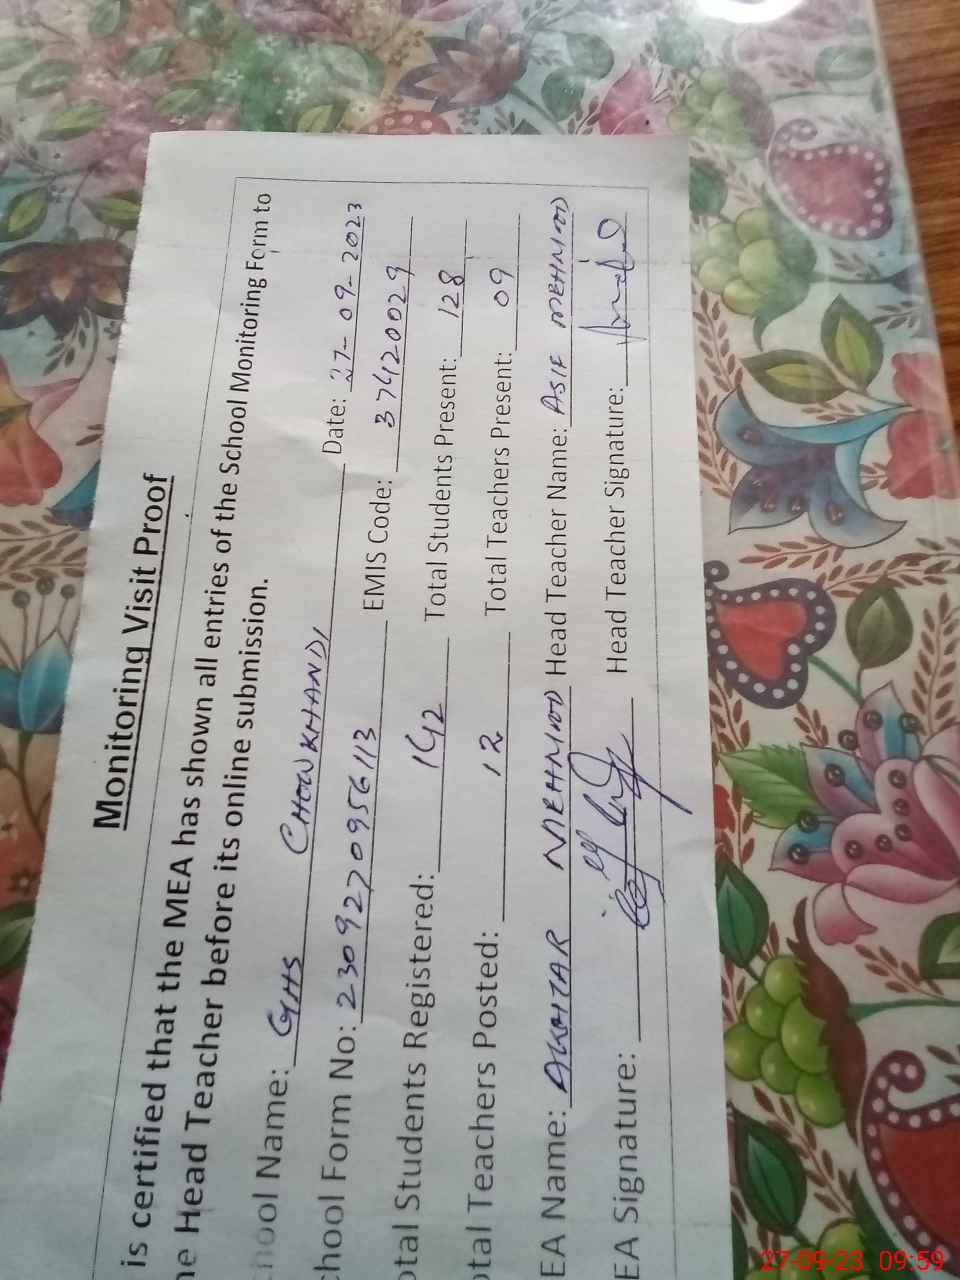 Monitoring Visit Proof
is certified that the MEA has shown all entries of the School Monitoring Form to
he Head Teacher before its online submission.
hool Name: GHS CHOWKHANDI Date: 27-09-2023
chool Form No: 2309270956113 EMIS Code: 37420029
otal Students Registered: 142 Total Students Present: 128
otal Teachers Posted: 12 Total Teachers Present: 09
EA Name: AKHTAR MEHMOOD Head Teacher Name: ASIF MEHMOOD
EA Signature: Head Teacher Signature:
27-09-23 09:59